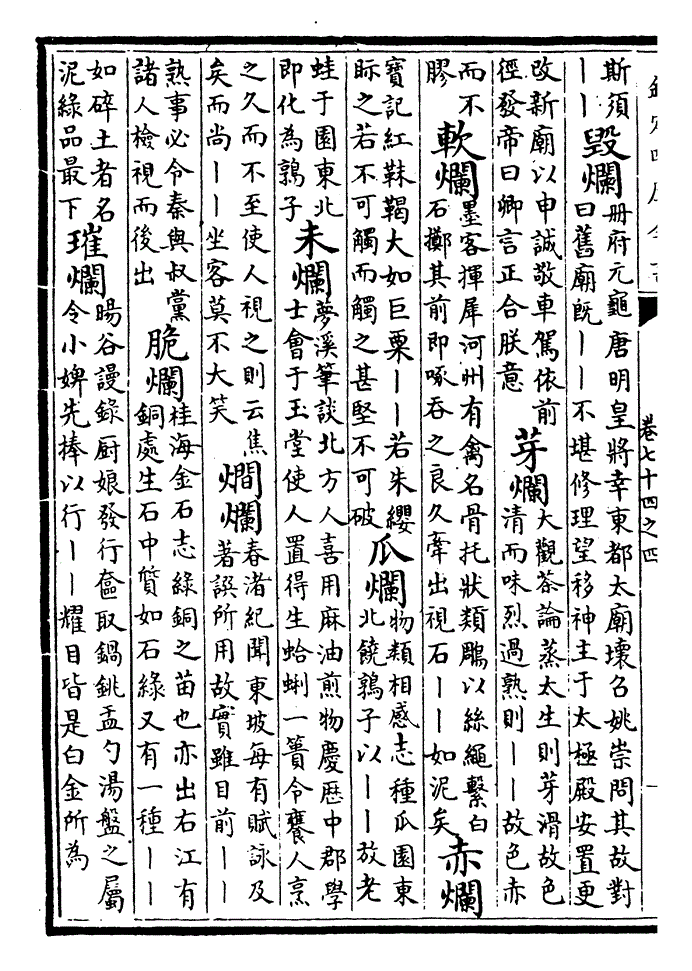 欽定四庫全書
卷七十四之四
斯須
——
毀爛
冊府元龜唐明皇將幸東都太廟壞召姚崇問其故對
曰舊廟既——不堪修理望移神主于太極殿安置更
改新廟以申誠敬車駕依前
徑發帝曰卿言正合朕意
芽爛
大觀茶論蒸太生則芽滑故色
清而味烈過熟則——故色赤
而不
膠
軟爛
墨客揮犀河州有禽名骨托狀類鵰以絲繩繫白
石擲其前即啄吞之良久牽出視石——如泥矣
赤爛
寶記紅靺鞨大如巨栗——若朱纓
眎之若不可觸而觸之甚堅不可破
瓜爛
物類相感志種瓜園東
北饒鶉子以——放老
蛙于園東北
即化為鶉子
未爛
夢溪筆談北方人喜用麻油煎物慶歴中郡學
士會于玉堂使人置得生蛤蜊一簣令饔人烹
之久而不至使人視之則云焦
矣而尚——坐客莫不大笑
燗爛
春渚紀聞東坡每有賦詠及
著誤所用故實雖目前——
熟事必令秦與叔黨
諸人檢視而後出
脆爛
桂海金石志綠銅之苗也亦出右江有
銅處生石中質如石綠又有一種——
如碎土者名
泥綠品最下
璀爛
暘谷謾錄厨娘發行奩取鍋銚盂勺湯盤之屬
令小婢先捧以行——耀目皆是白金所為